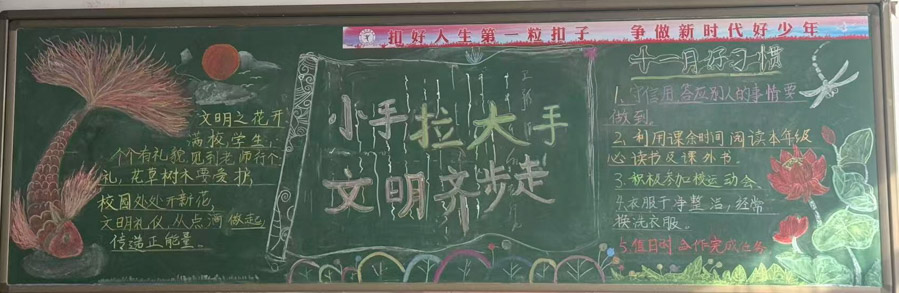 扣好人生第一粒扣子 争做新时代好少年
文明之花开
满校学生，
个个有礼貌见到老师行个
礼，花草树木要爱护，
校园处处开新花，
文明礼仪从点滴做起，
传递正能量。
小手拉大手
文明齐步走
十一月好习惯
1.守信用，答应别人的事情要
做到。
2.利用课余时间阅读本年级
必读书及课外书。
3.积极参加校运动会。
4.衣服干净整洁，经常
换洗衣服。
5.值日时合作完成任务